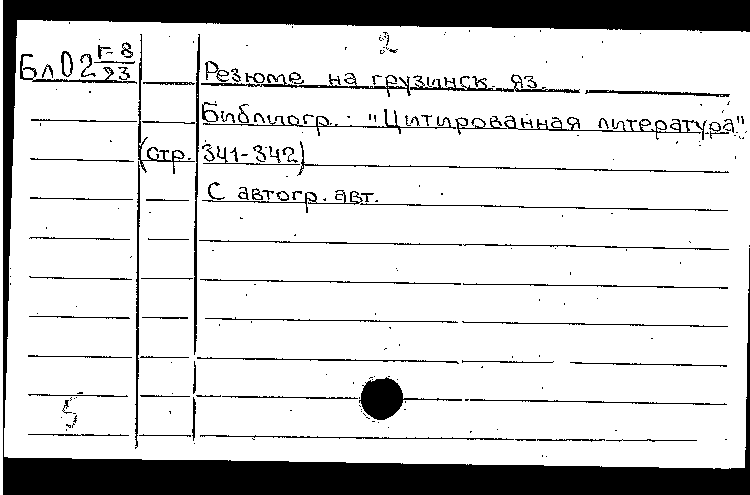 2
Бл02 Г-8/93
Резюме на грузинск. яз.
Библиогр.: "Цитированная литература"
(стр. 341-342)
С автогр. авт.
5